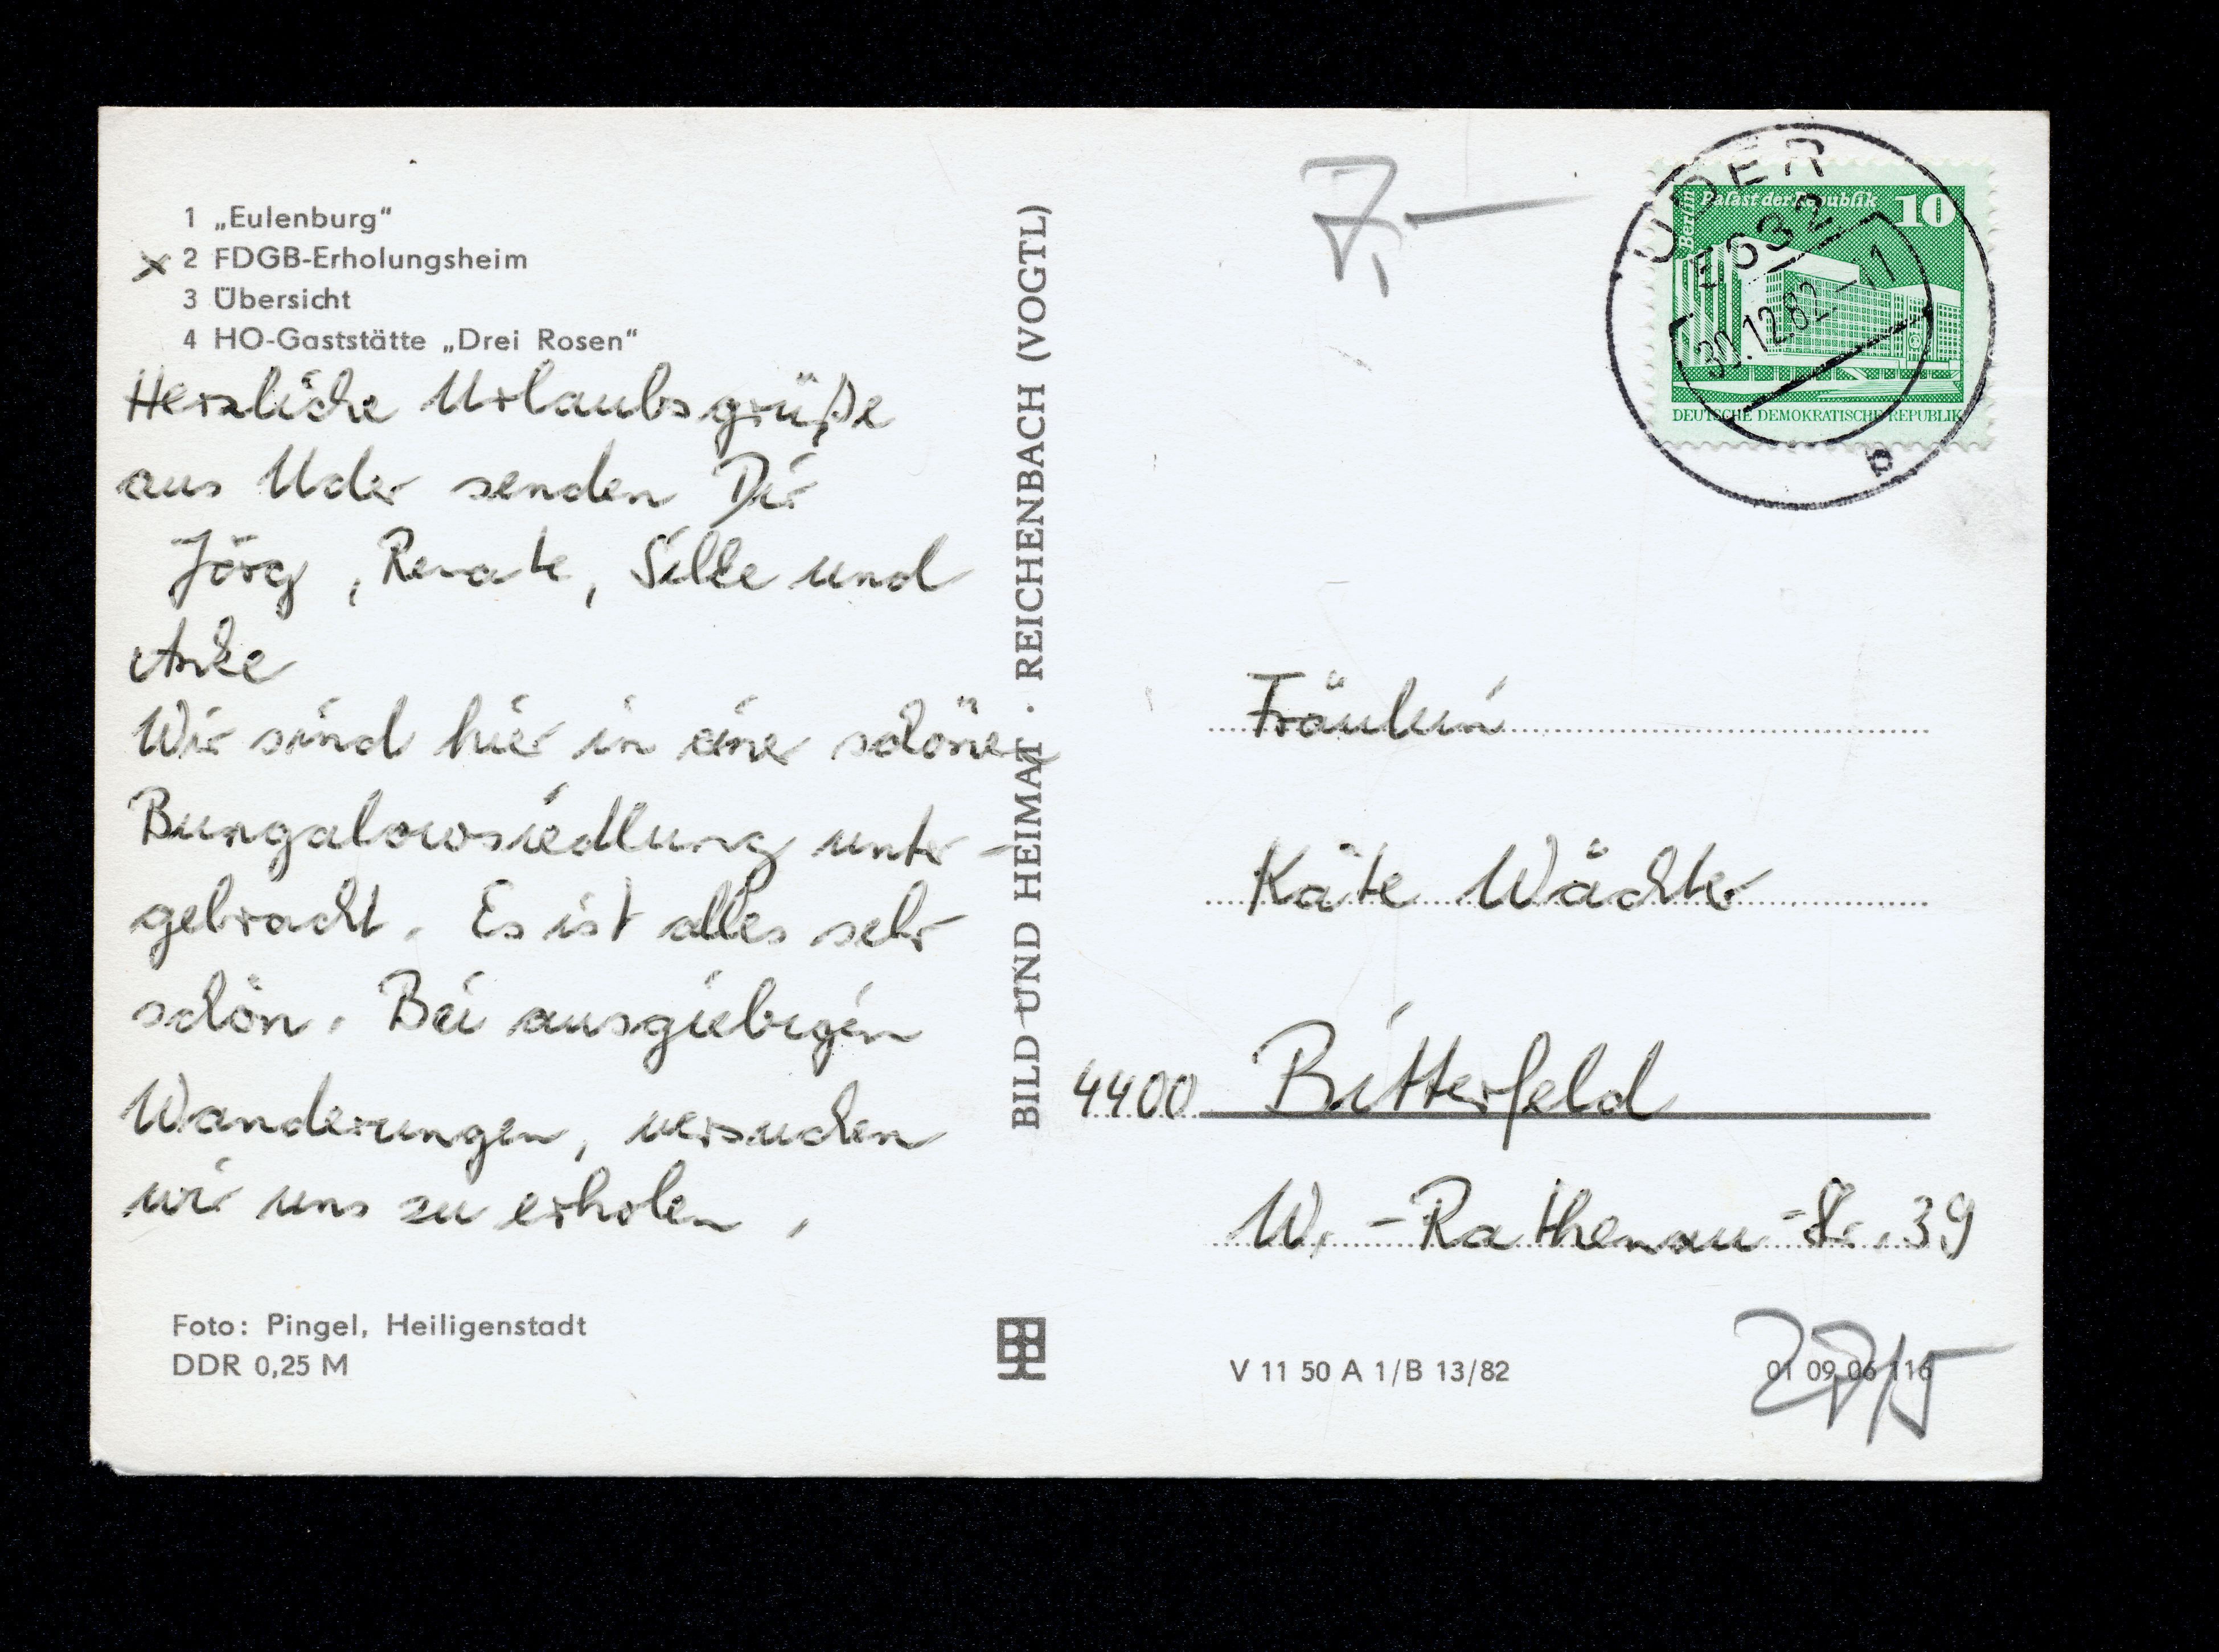 1 „Eulenburg“
x 2 FDGB-Erholungsheim
3 Übersicht
4 HO-Gaststätte „Drei Rosen“
Herzliche Urlaubsgrüße
aus Uder senden Dir
Jörg, Renate, Silke und
Anke
Wir sind hier in einer schönen
Bungalowsiedlung unter-
gebracht. Es ist alles sehr
schön. Bei ausgiebigen
Wanderungen, versuchen
wir uns zu erholen.
Foto: Pingel, Heiligenstadt
DDR 0,25 M
BILD UND HEIMAT · REICHENBACH (VOGTL)
7,—
Berlin
Palast der Republik
10
DEUTSCHE DEMOKRATISCHE REPUBLIK
UDER
5632
30.12.82-11
b
Fräulein
Käte Wächter
4400 Bitterfeld
W.-Rathenau-Str. 39
V 11 50 A 1/B 13/82
01 09 06 116